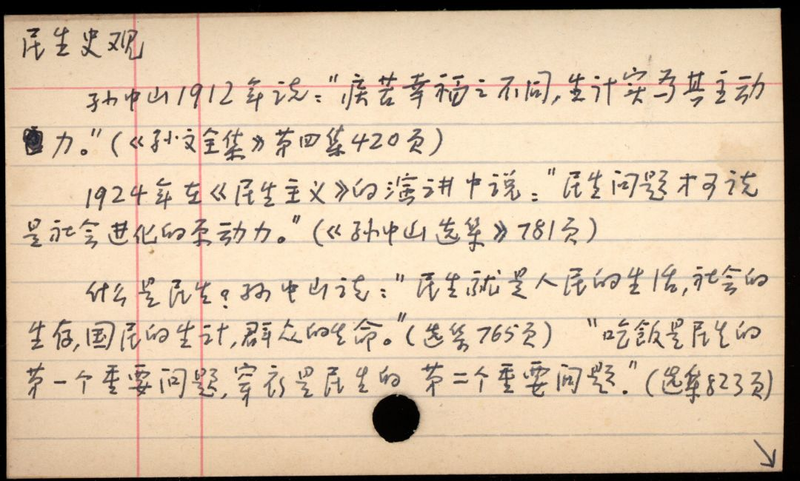 民生史观
孙中山1912年说:"疾苦幸福之不同,生计实为其主动
力。"(《孙文全集》第四集420页)
1924年在《民生主义》的演讲中说:"民生问题才可说
是社会进化的原动力。"(《孙中山选集》781页)
什么是民生?孙中山说:"民生就是人民的生活,社会的
生存,国民的生计,群众的生命。"(选集765页) "吃飯是民生的
第一个重要问题,穿衣是民生的第二个重要问题。"(选集823页)
↘